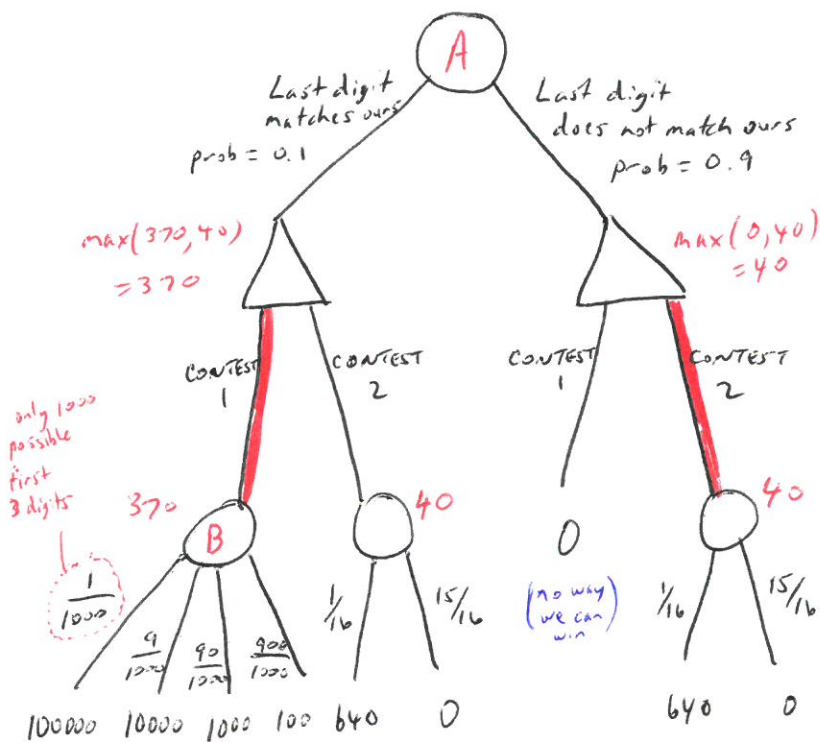 A
Last digit
matches ours
prob = 0.1
Last digit
does not match ours
prob = 0.9
max(370,40)
=370
max(0,40)
=40
CONTEST
1
CONTEST
2
CONTEST
1
CONTEST
2
only 1000
possible
first
3 digits
370
B
40
0
(no way
we can
win)
40
1/1000
9/1000
90/1000
900/1000
1/16
15/16
1/16
15/16
100000 10000 1000 100 640 0
640 0